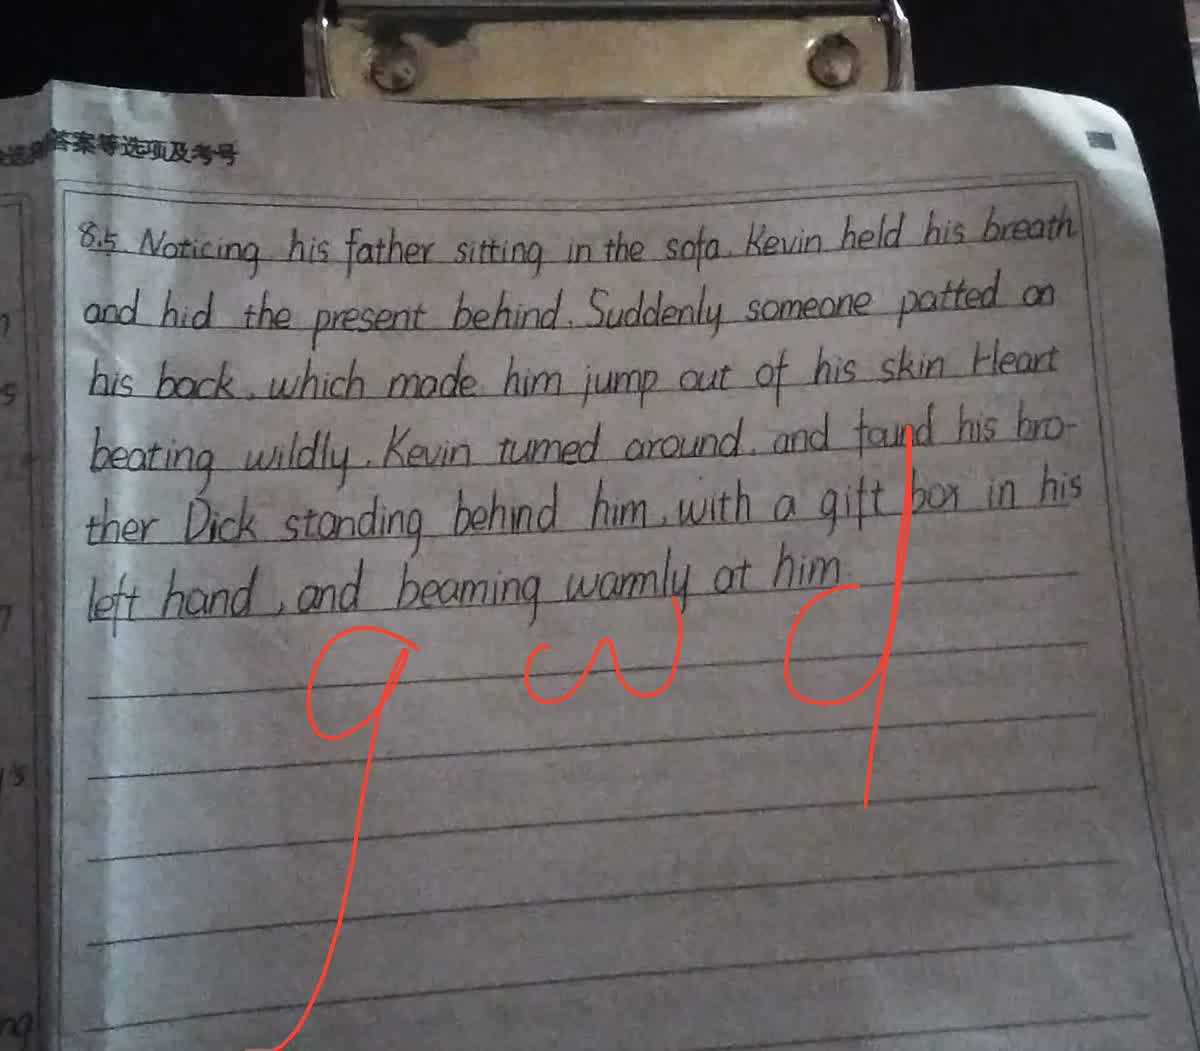 答案等选项及考号
8.5 Noticing his father sitting in the sofa, Kevin held his breath
and hid the present behind. Suddenly someone patted on
his back, which made him jump out of his skin Heart
beating wildly, Kevin turned around, and found his bro-
ther Dick standing behind him, with a gift box in his
left hand, and beaming warmly at him.